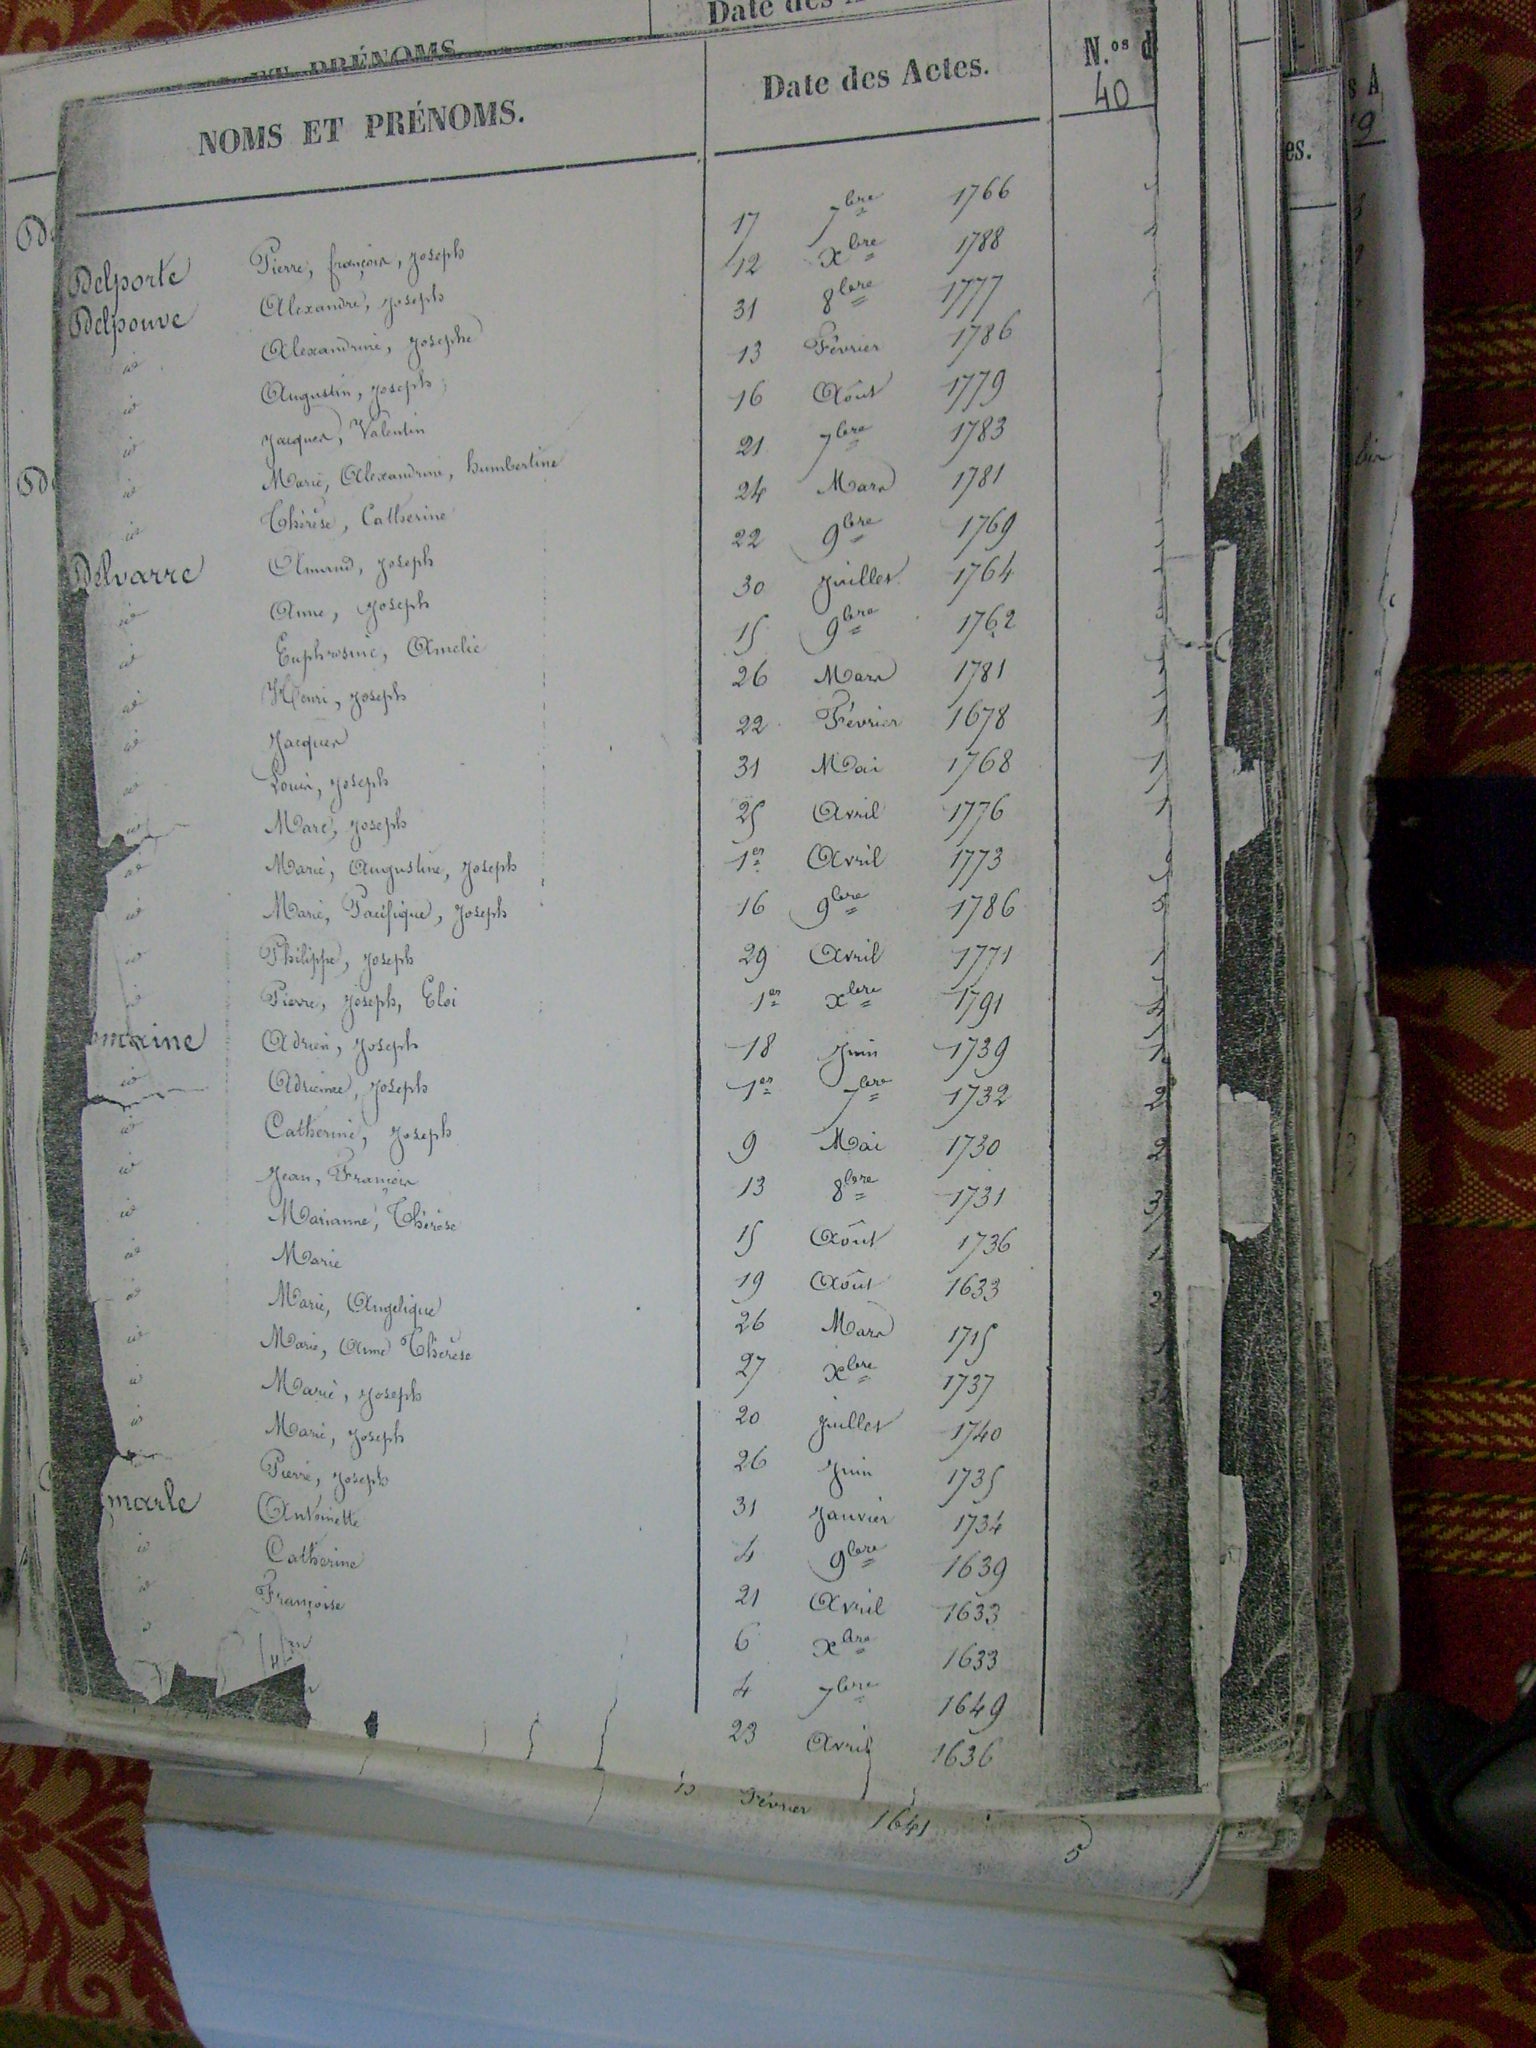 Date des
ET PRÉNOMS
NOMS ET PRÉNOMS. Date des Actes. N.os d
40
Delporte Pierre, françois, Joseph 17 7bre 1766
Delpouve Alexandre, Joseph 12 xbre 1788
id Alexandrine, Josephe 31 8bre 1777
id Augustin, Joseph 13 Février 1786
id Jacques, Valentin 16 Août 1779
id Marie, Alexandrine, humbertine 21 7bre 1783
id Thérèse, Catherine 24 Mars 1781
Delvarre Amand, Joseph 22 9bre 1769
id Anne, Joseph 30 Juillet 1764
id Euphrosine, Amelie 15 9bre 1762
id Henri, Joseph 26 Mars 1781
id Jacques 22 Février 1678
id Louis, Joseph 31 Mai 1768
id Marc, Joseph 25 Avril 1776
id Marie, Augustine, Joseph 1er Avril 1773
id Marie, Pacifique, Joseph 16 9bre 1786
id Philippe, Joseph 29 Avril 1771
id Pierre, Joseph, Eloi 1er xbre 1791
maine Adrien, Joseph 18 Juin 1739
id Adrienne, Joseph 1er 7bre 1732
id Catherine, Joseph 9 Mai 1730
id Jean, François 13 8bre 1731
id Marianne, Thérèse 15 Août 1736
id Marie 19 Août 1633
id Marie, Angelique 26 Mars 1715
id Marie, Anne Thérèse 27 xbre 1737
id Marie, Joseph 20 Juillet 1740
id Marie, Joseph 26 Juin 1735
id Pierre, Joseph 31 Janvier 1734
marle Antoinette 4 9bre 1639
id Catherine 21 Avril 1633
id Françoise 6 xbre 1633
4 7bre 1649
23 Avril 1636
Février 1641 5